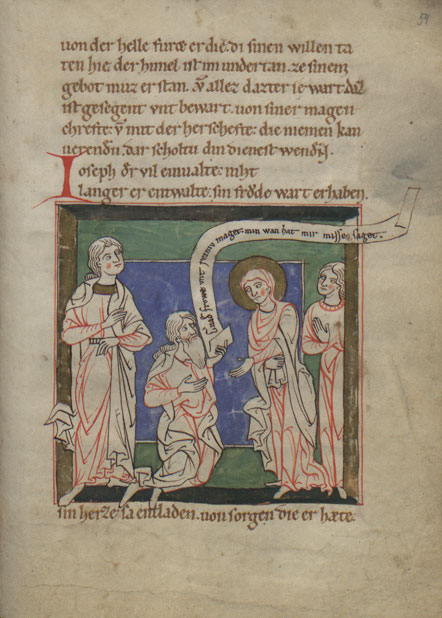 59
von der helle furœ er die. di sinen willen ta
ten hie. der himel ist im undertan. ze sinem
gebot muz er stan. vñ allez daz ter ie wart. daz
ist gesegent vnt bewart. von siner magen
chrefte. vñ mit der herschefte. die niemen kan
verendn. dar scholtu din dienest wendn.
Ioseph dr vil einualte. niht
langer er entwalte. sin frǒde wart erhaben.
frowe vnt reiniv maget. min wan hat mir misses saget.
sin herze sa entladen. von sorgen die er hæte.